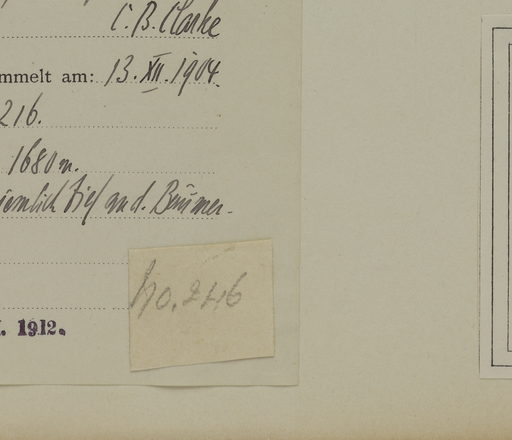 C. B. Clarke
ammelt am: 13. XII. 1904.
216.
1680 m.
iemlich tief and. Bäumen.
No. 216
I. 1912.